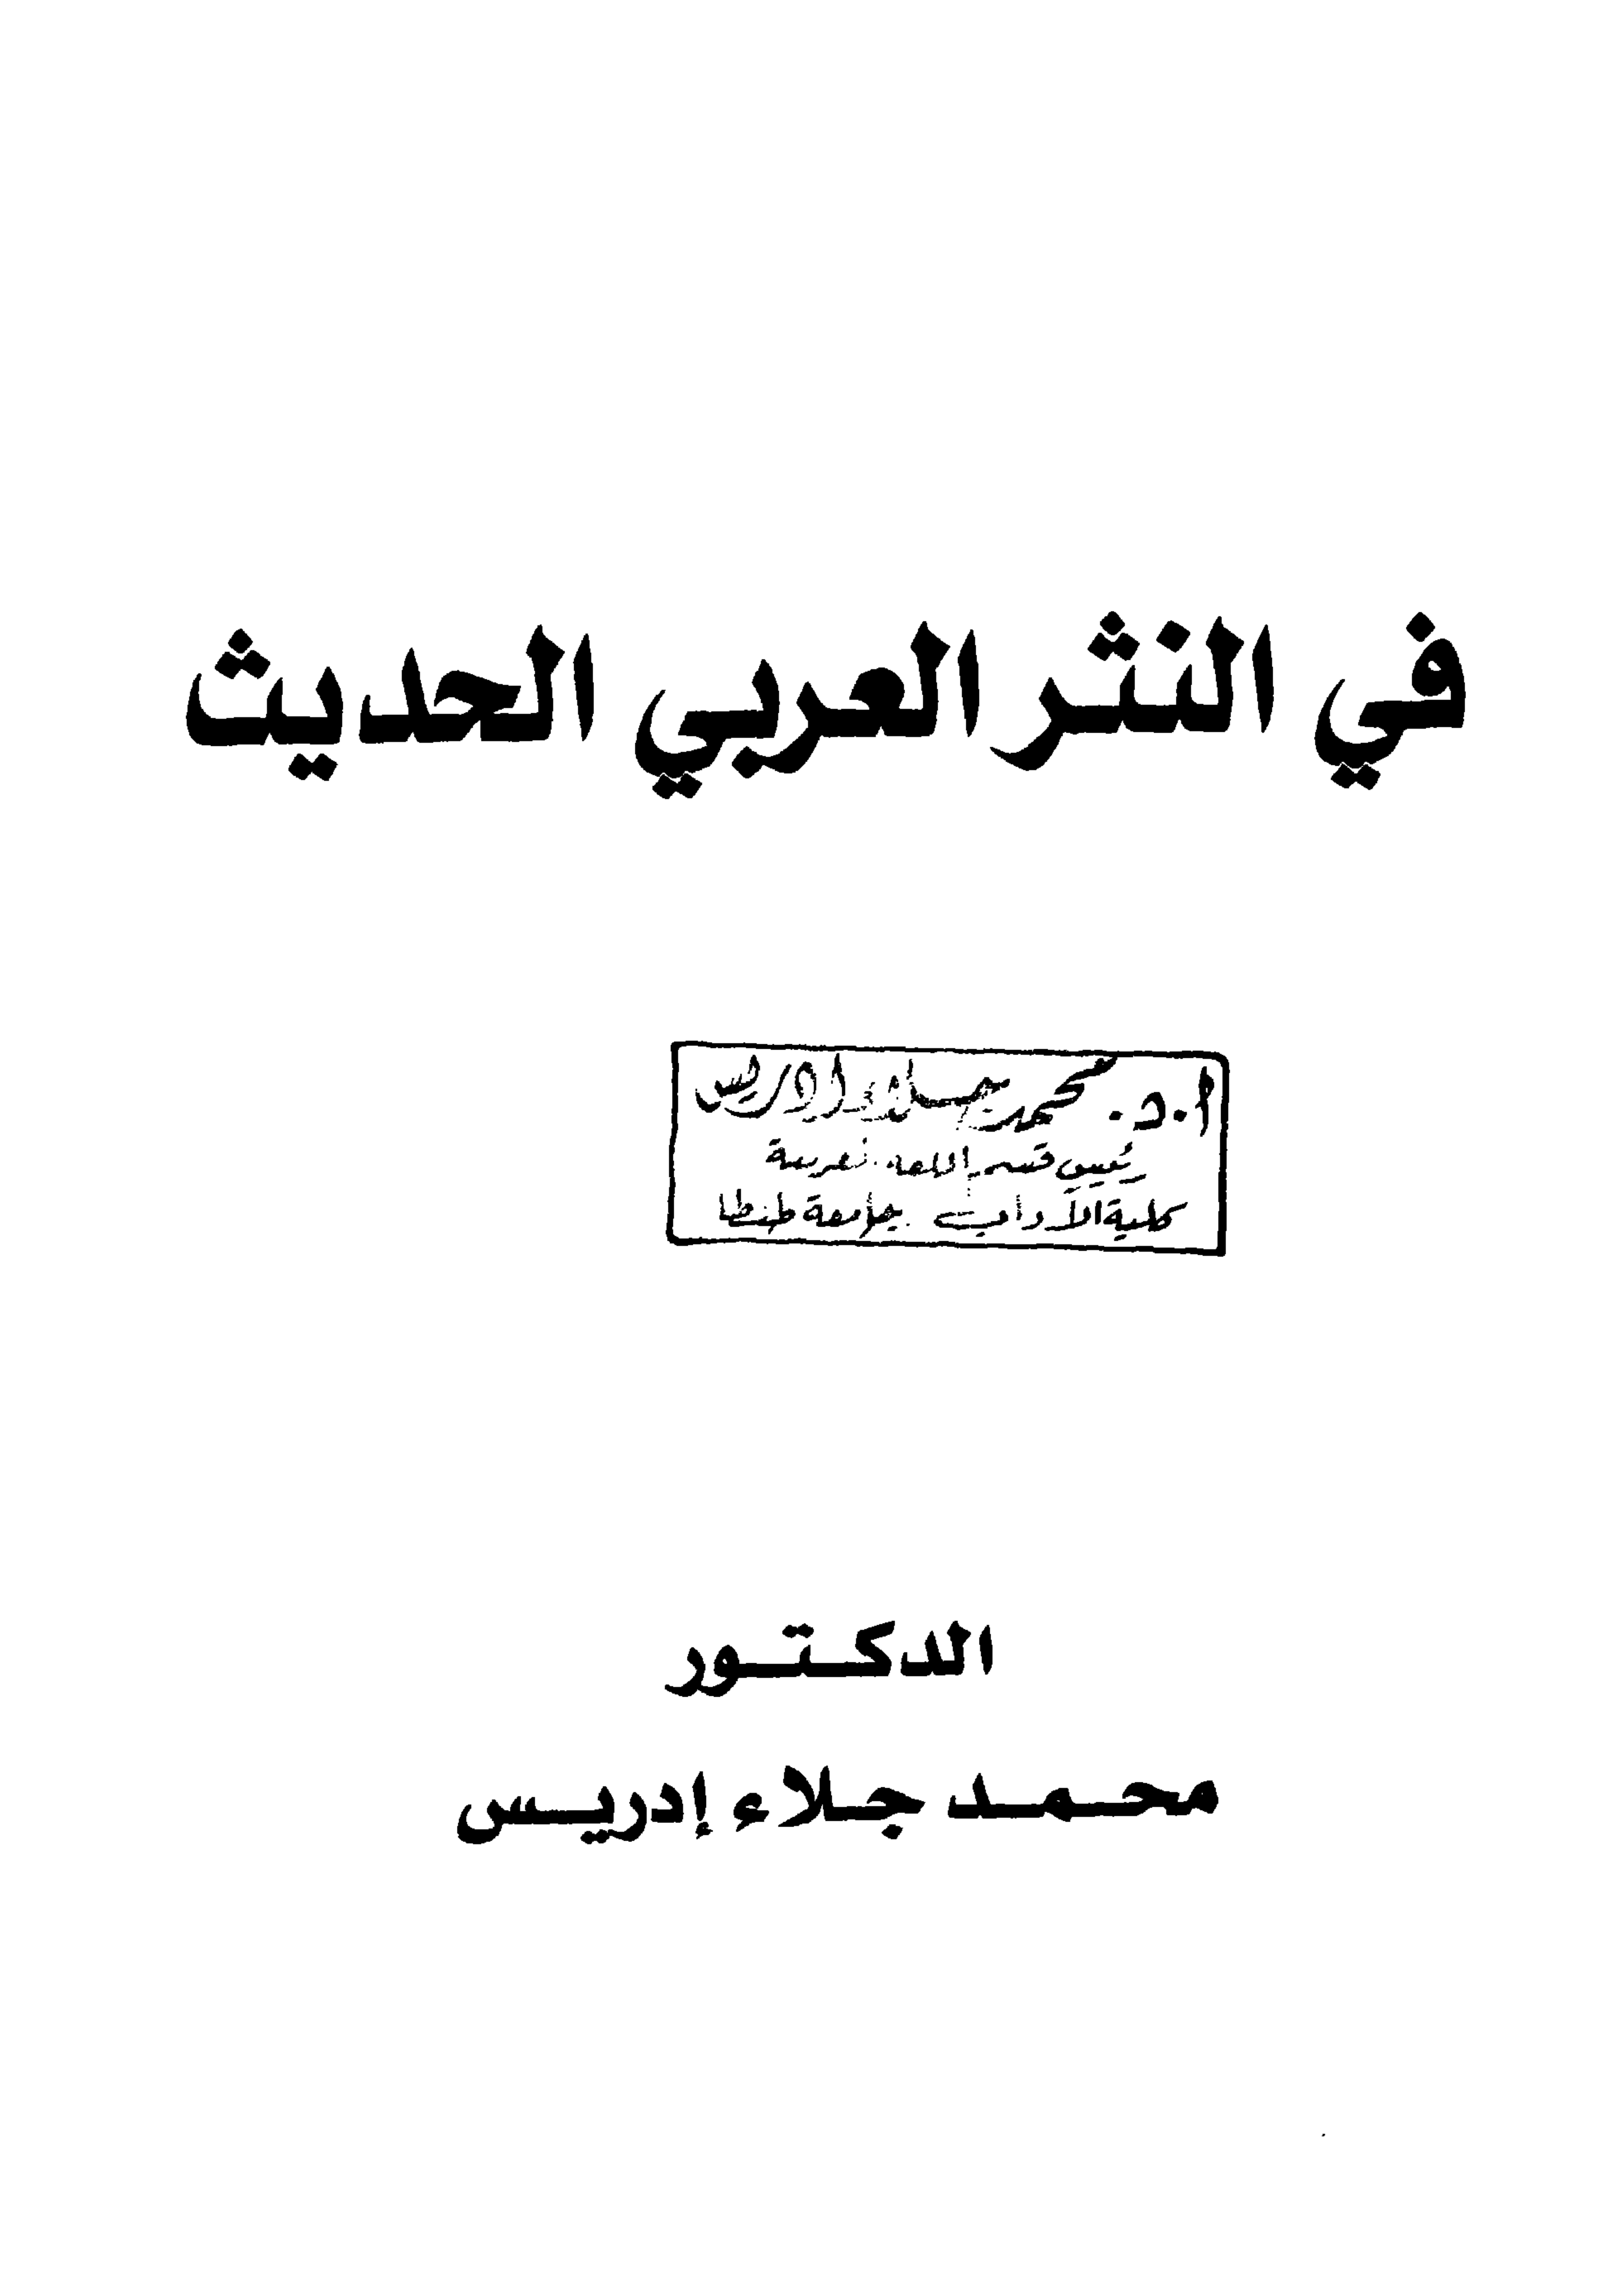 في النثر العربي الحديث
أ.د. محمد جلاء إدريس
رئيس قسم اللغة العربية
كلية الآداب جامعة طنطا
الدكتور
محمد جلاء إدريس